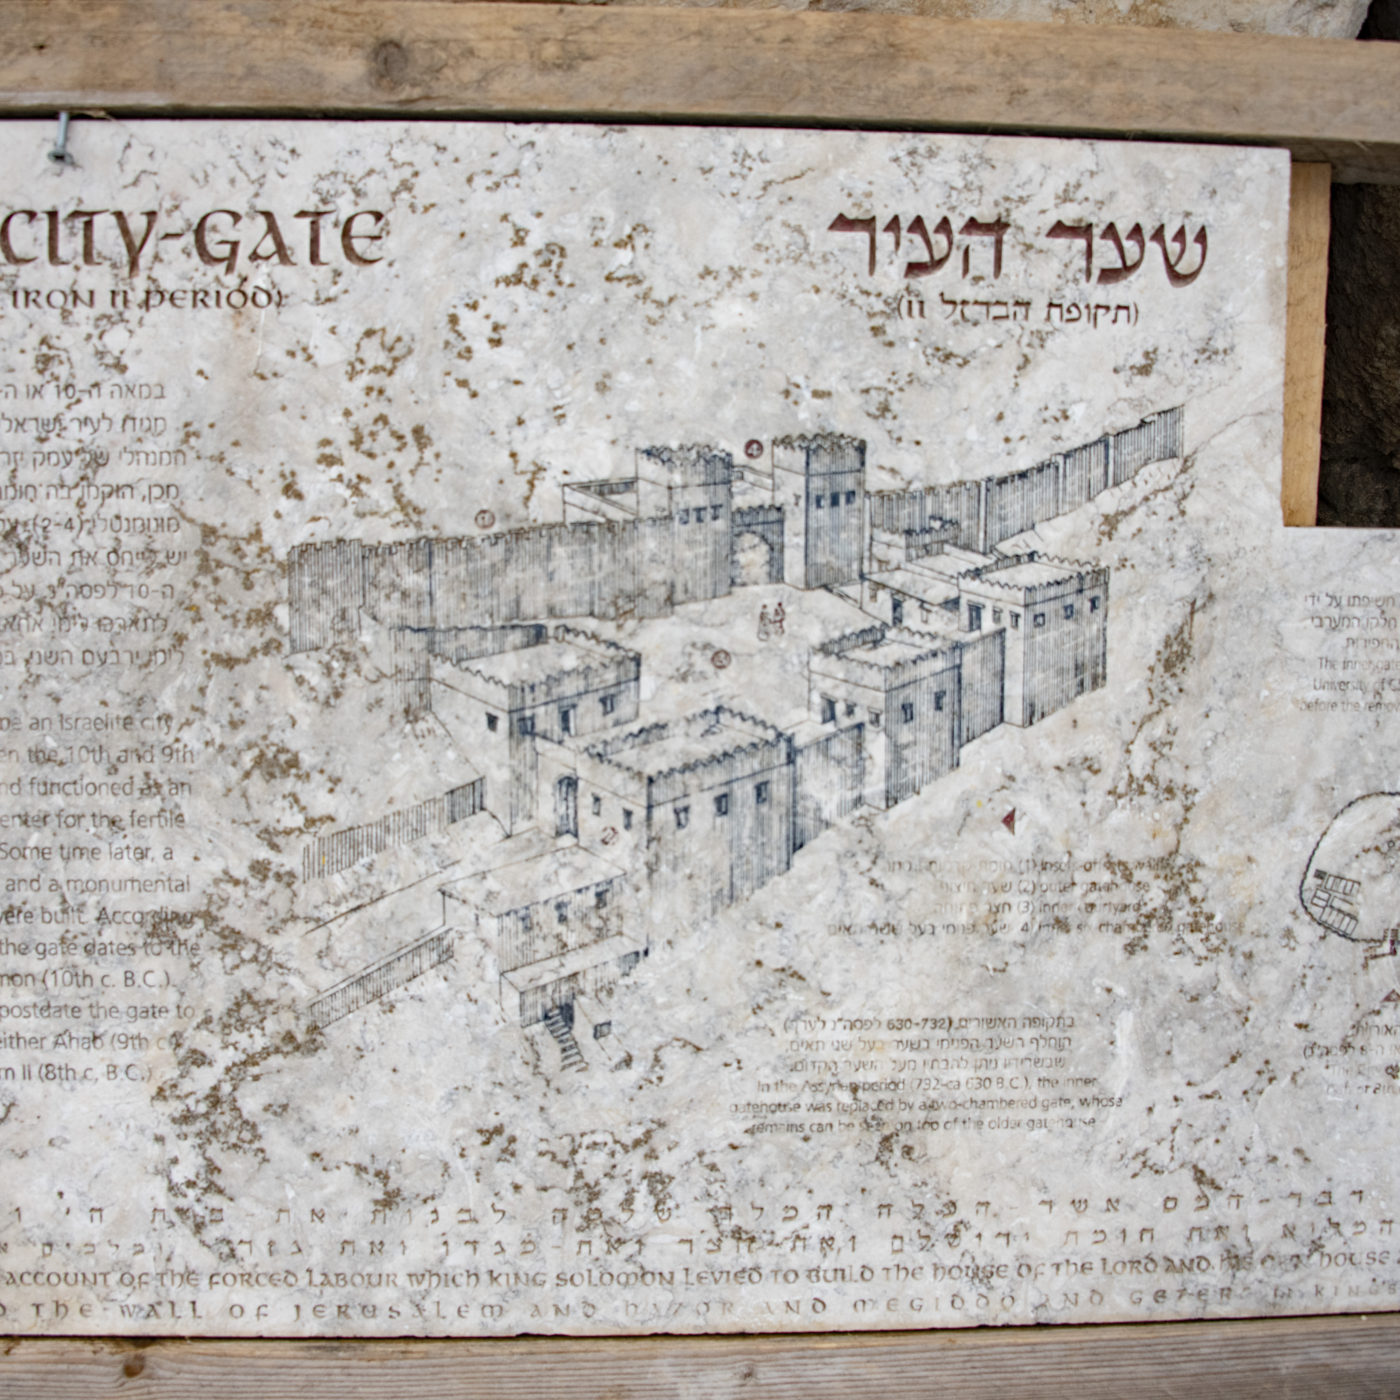 CITY-GATE
IRON II PERIOD)
שער העיר
(תקופת הברזל II)
במאה ה-10 או ה-
מגידו לעיר ישראל
המנהלי של עמק יזר
מכן, הוקמו בה חומ
מונומנטלי (2-4). על
יש לייחס את השער
ה-10 לפסה"נ. על
לתארכו לימי אחא
לימי ירבעם השני, במ
be an Israelite city
en the 10th and 9th
nd functioned as an
enter for the fertile
Some time later, a
and a monumental
were built. According
the gate dates to the
mon (10th c. B.C.).
postdate the gate to
either Ahab (9th c
m II (8th c. B.C.)
1
4
3
2
(1) insets-offsets wall
שער חיצון (2) outer gatehouse
חצר פנימית (3) inner courtyard
שער פנימי בעל ששה תאים (4) six chambered gatehouse
בתקופה האשורית (630-732 לפסה"נ לערך)
הוחלף השער הפנימי בשער בעל שני תאים,
שבשרידיו ניתן להבחין מעל השער הקדום.
In the Assyrian period (732-ca 630 B.C.), the inner
gatehouse was replaced by a two-chambered gate, whose
remains can be seen on top of the older gatehouse
חשיפתו על ידי
חלקו המערבי
The inner gate
University of
before the remov
דבר-המס אשר-העלה המלך שלמה לבנות את-בית ה' ו
המלוא ואת חומת ירושלם ואת-חצר ואת-מגדו ואת-גזר
ACCOUNT OF THE FORCED LABOUR WHICH KING SOLOMON LEVIED TO BUILD THE HOUSE OF THE LORD AND HIS OWN HOUSE
THE WALL OF JERUSALEM AND HAZOR AND MEGIDDO AND GEZER KING